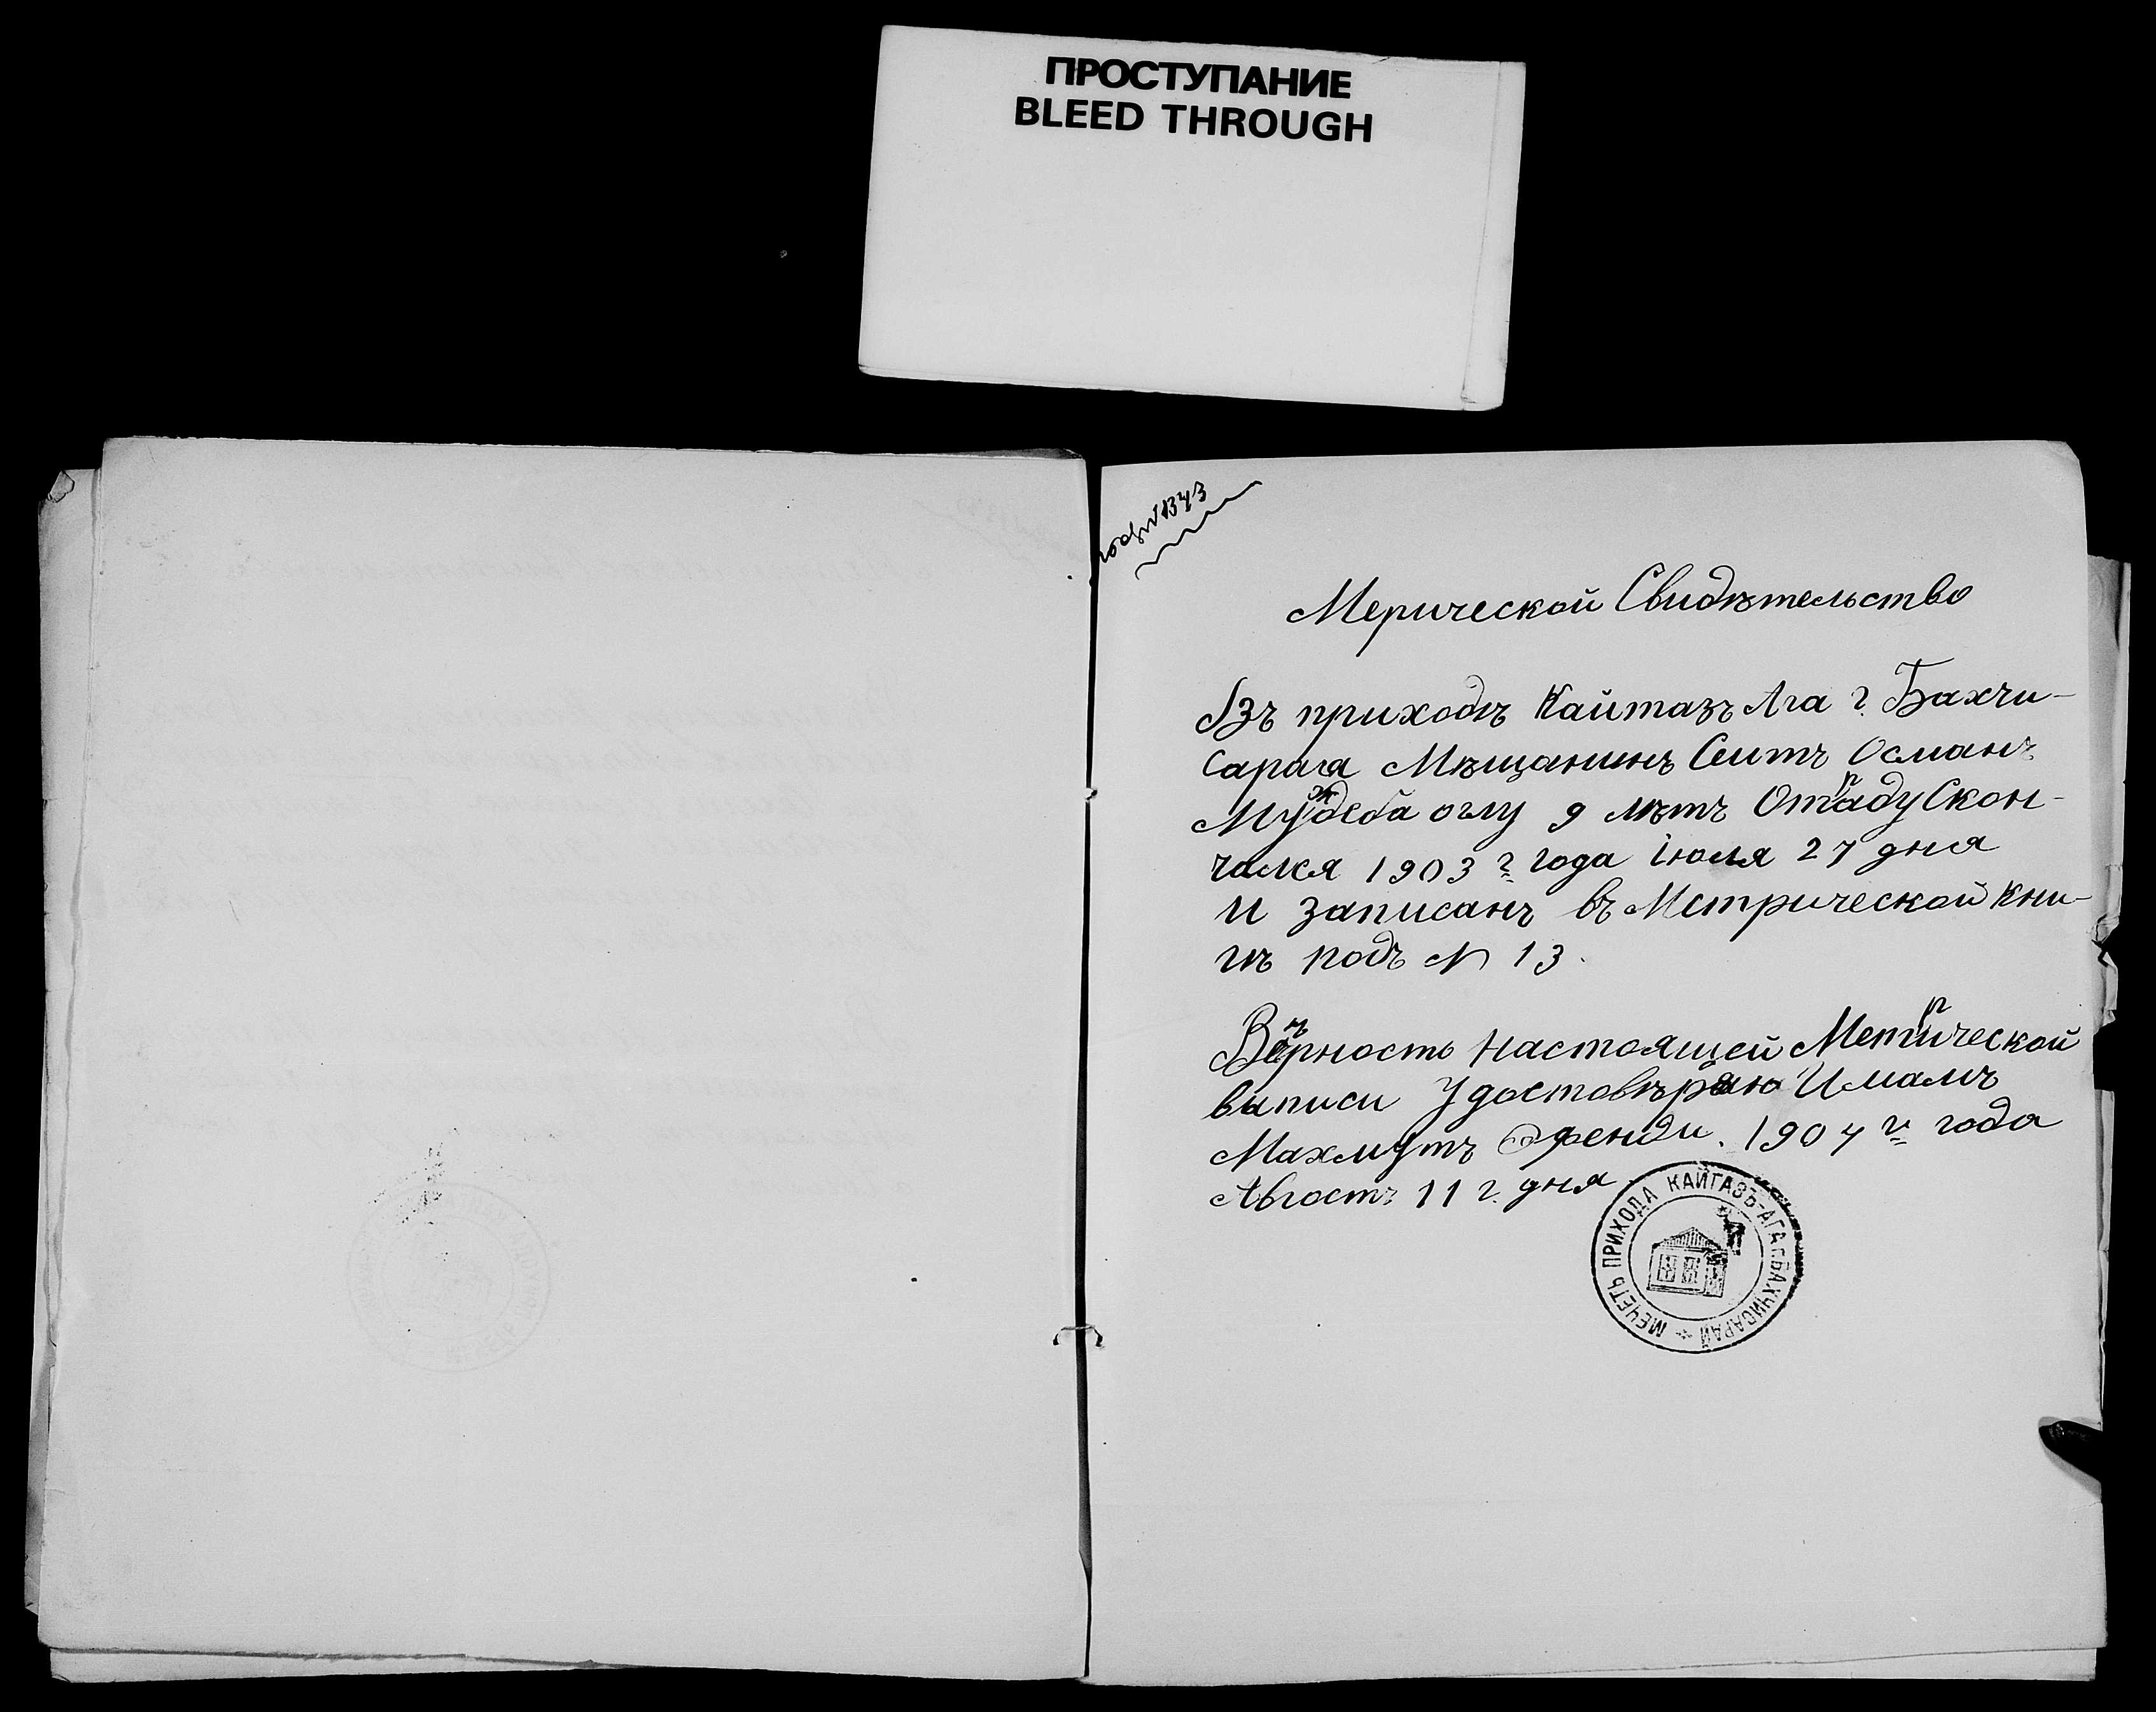 ПРОСТУПАНИЕ
BLEED THROUGH
1343
Мерической Свидѣтельство
Изъ приходѣ Кайтазъ Ага г. Бахчи-
сарая Мѣщанинъ Сеитъ Османъ
оглу 9 лѣтъ Скон-
чался 1903 г. года Іюля 27 дня
и записанъ въ Метрической кни-
гѣ подъ N 13.
Вѣрность настоящей Метрической
выписи Удостовѣраю Имамъ
Махмутъ Эфенди. 1904 г. года
Авгостъ 11 г. дня
МЕЧЕТЬ ПРИХОДА КАЙГАЗЪ-АГА Г. БАХЧИСАРАЙ